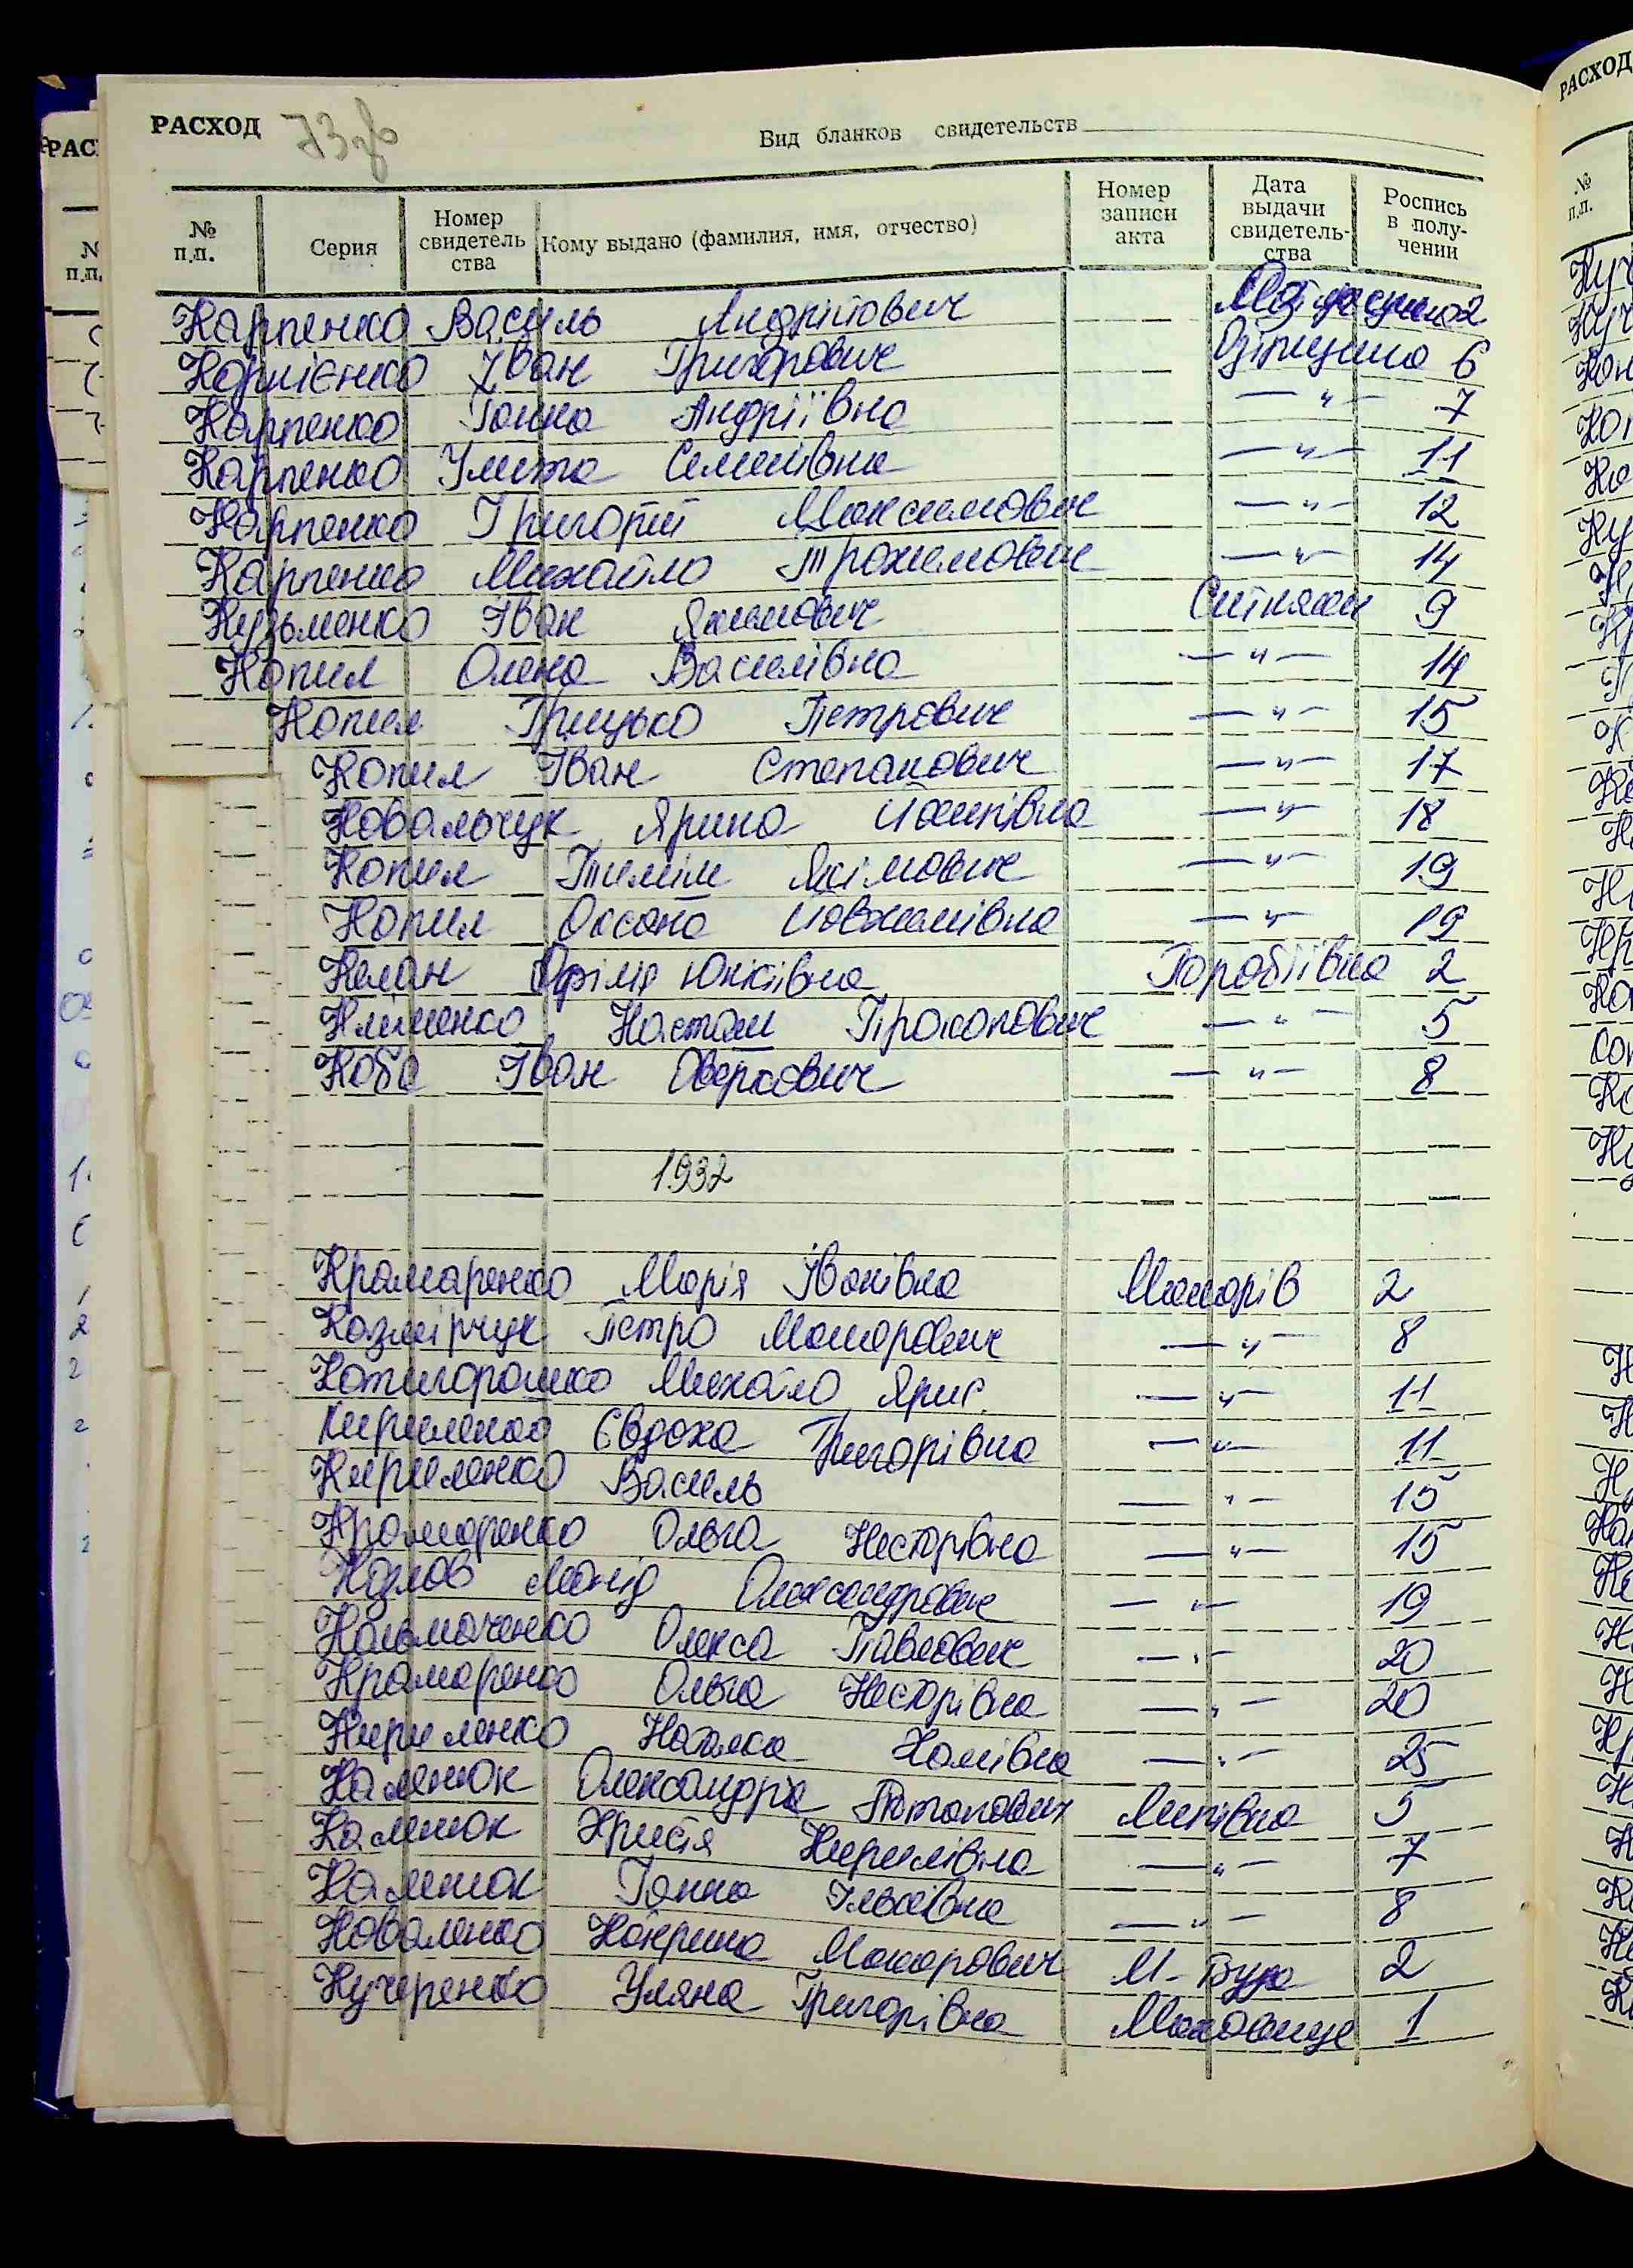 РАСХОД 73зв
Вид бланков свидетельств
№ п.п. Серия Номер свидетельства Кому выдано (фамилия, имя, отчество) Номер записи акта Дата выдачи свидетельства Роспись в получении
Карпенко Василь Андрійович 2
Корнієнко Іван Григорович 6
Карпенко Ганна Андріївна — " — 7
Карпенко Улита Семенівна — " — 11
Карпенко Григорій Максимович — " — 12
Карпенко Михайло Трохимович — " — 14
Кузьменко Іван Якимович Ситняки 9
Копил Олена Василівна — " — 14
Копил Грицько Петрович — " — 15
Копил Іван Степанович — " — 17
Ковальчук Ярина Йосипівна — " — 18
Копил Тиміш Якімович — " — 19
Копил Оксана Йовхимівна — " — 19
Келан Юхківна Горобіївка 2
Кліменко Настам Прокопович — " — 5
Коба Іван Оверкович — " — 8
1932
Крамаренко Марія Іванівна Макарів 2
Казмірчук Петро Макарович — " — 8
Котигорошко Михайло Ярис. — " — 11
Кириленко Євдоха Григорівна — " — 11
Кириленко Василь — " — 15
Крамаренко Ольга Несторівна — " — 15
Козлов Леонід Олександрович — " — 19
Кальмаченко Олекса Павлович — " — 20
Крамаренко Ольга Несторівна — " — 20
Кириленко Наталка Хомівна — " — 25
Каленюк Олександра Потапович Липівка 5
Каленюк Христя Кирилівна — " — 7
Каленюк Ганна Ільківна — " — 8
Коваленко Кокрина Макарович М-Буда 2
Кучеренко Уляна Григорівна Маковище 1